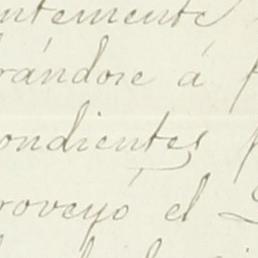 ntemente
rándose á
ondientes
roveyó el